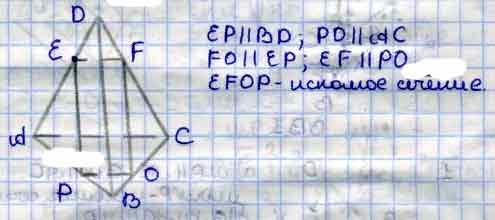 D
E F
EP||BD; PO||AC
FO||EP; EF||PO
EFOP - искомое сечение.
A C
P O
B